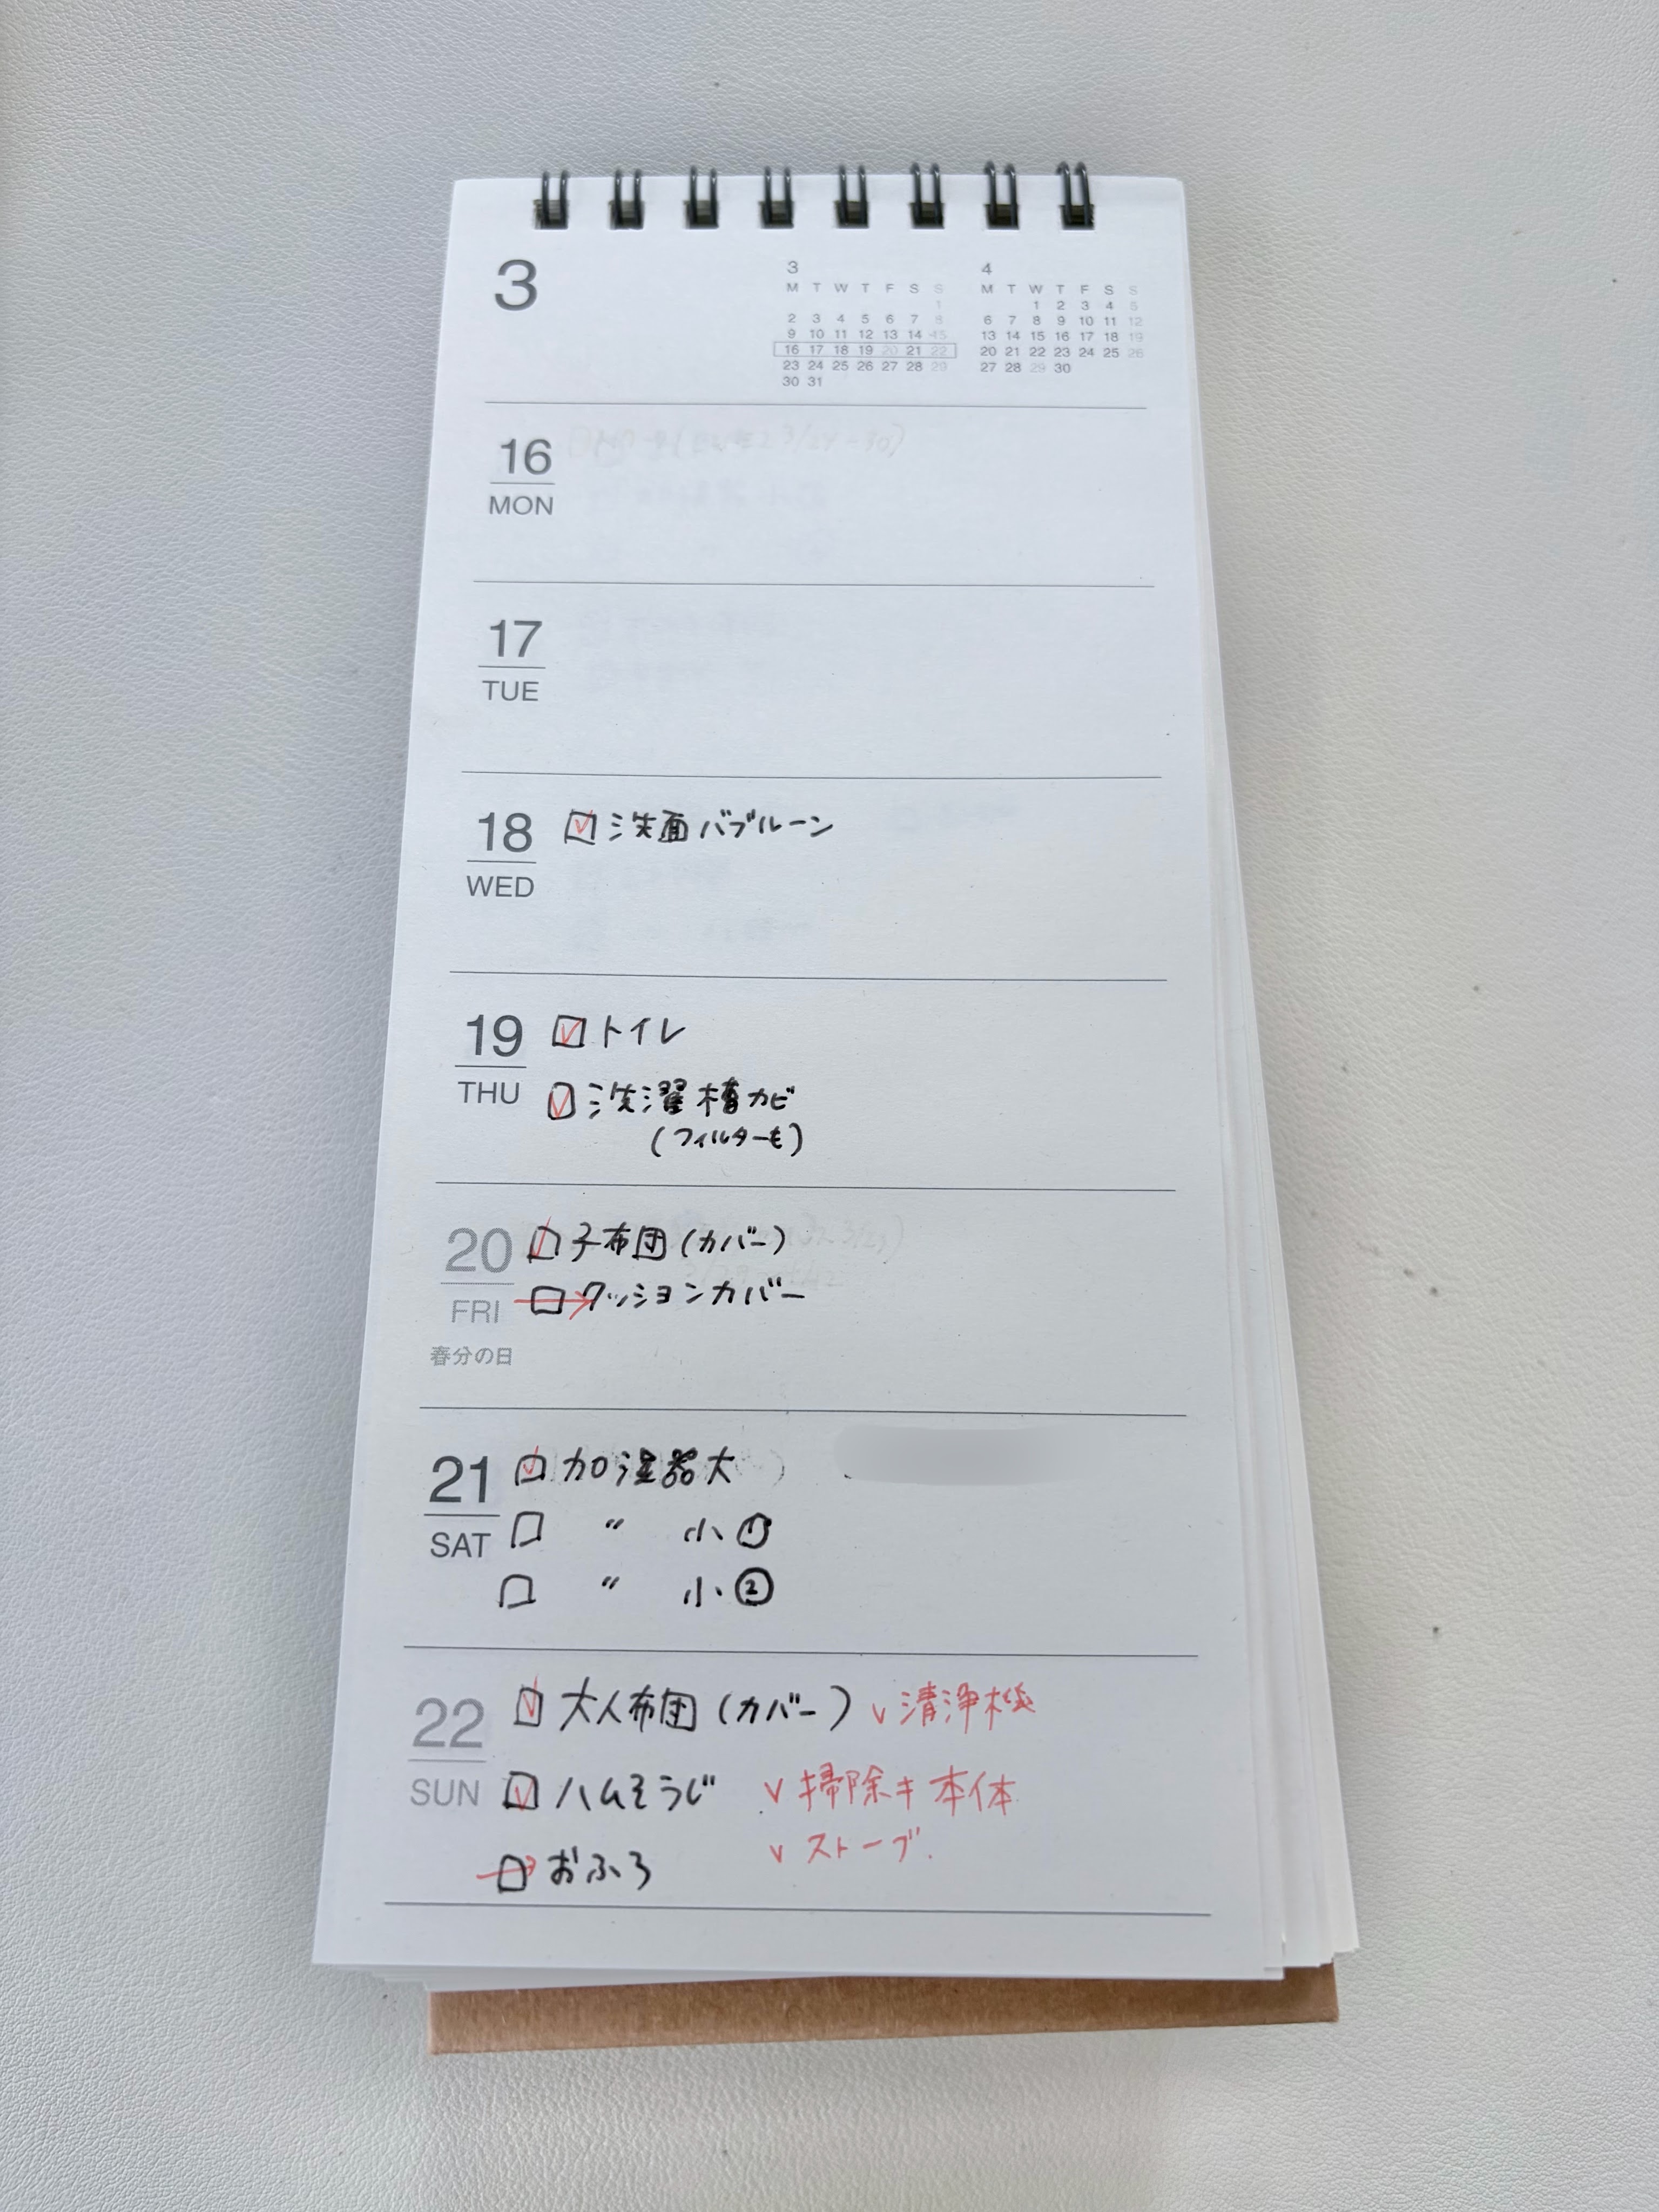 3
3
M T W T F S S
1
2 3 4 5 6 7 8
9 10 11 12 13 14 15
16 17 18 19 20 21 22
23 24 25 26 27 28 29
30 31
4
M T W T F S S
1 2 3 4 5
6 7 8 9 10 11 12
13 14 15 16 17 18 19
20 21 22 23 24 25 26
27 28 29 30
16
MON
17
TUE
18
WED
☑ 洗面バブルーン
19
THU
☑ トイレ
☑ 洗濯槽カビ
(フィルターも)
20
FRI
春分の日
☑ 子布団(カバー)
→ □ クッションカバー
21
SAT
☑ 加湿器大
□ 〃 小①
□ 〃 小②
22
SUN
☑ 大人布団(カバー) ✓ 清浄機
☑ ハムそうじ ✓ 掃除キ本体
→ □ おふろ ✓ ストーブ.